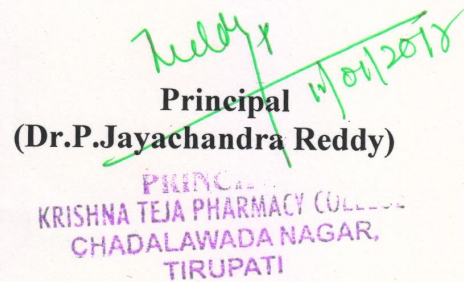 Reddy
10/01/2018
Principal
(Dr.P.Jayachandra Reddy)
KRISHNA TEJA PHARMACY
CHADALAWADA NAGAR,
TIRUPATI